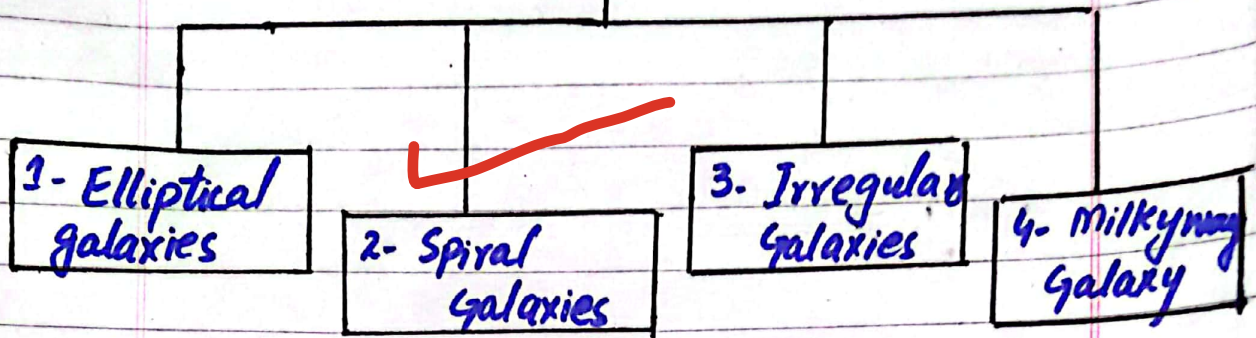 1- Elliptical
galaxies
2- Spiral
Galaxies
3. Irregular
Galaxies
4- Milkyway
Galaxy